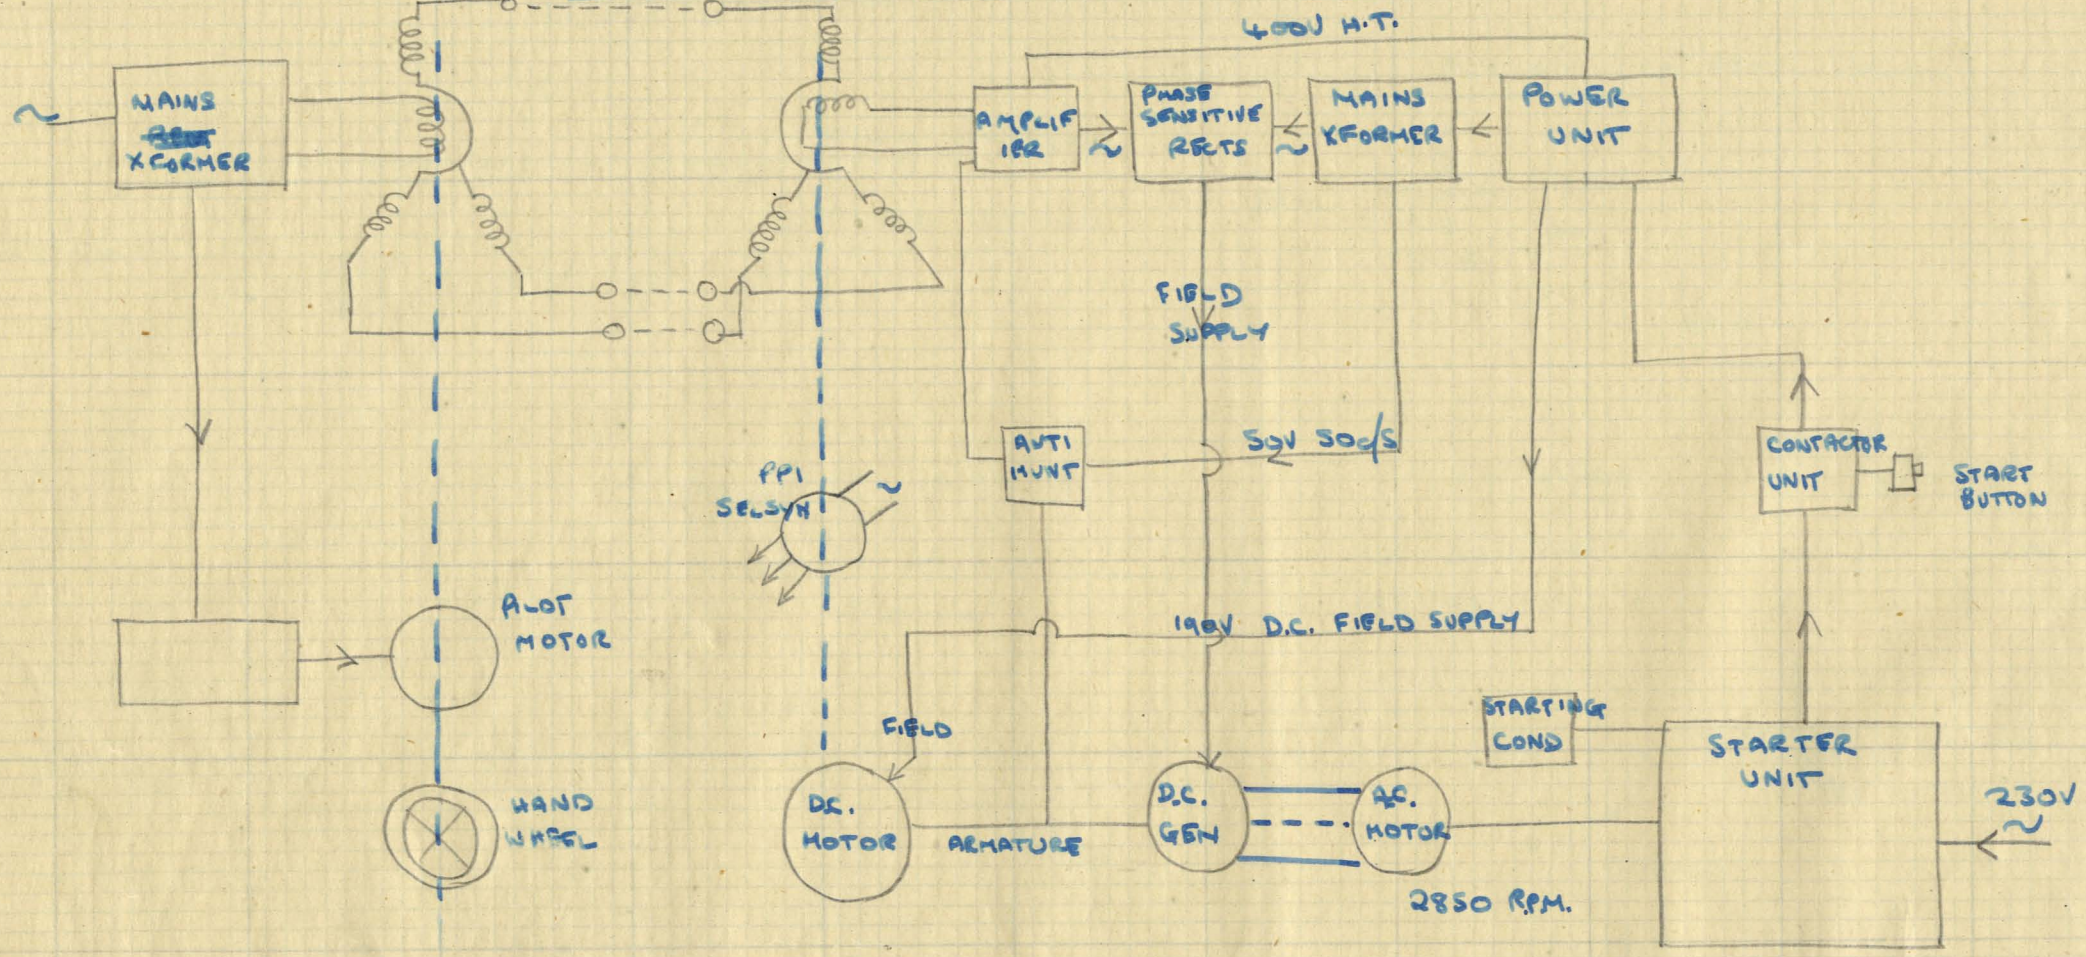 400V H.T.
MAINS
XFORMER
AMPLIF
IER
PHASE
SENSITIVE
RECTS
MAINS
XFORMER
POWER
UNIT
~
~
~
FIELD
SUPPLY
ANTI
HUNT
50V 50c/s
CONTACTOR
UNIT
START
BUTTON
PPI
SELSYN
~
PILOT
MOTOR
190V D.C. FIELD SUPPLY
FIELD
STARTING
COND
STARTER
UNIT
HAND
WHEEL
D.C.
MOTOR
ARMATURE
D.C.
GEN
A.C.
MOTOR
230V
~
2850 R.P.M.